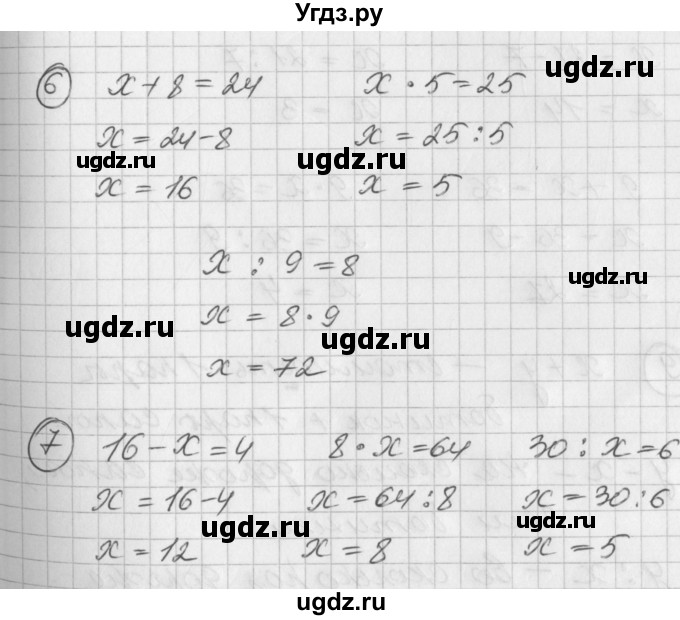 Угдз.ру
6 x + 8 = 24 x · 5 = 25
ugdz.ru
x = 24 - 8 x = 25 : 5
ugdz.ru ugdz.ru
x = 16 x = 5
x : 9 = 8
ugdz.ru
x = 8 · 9
ugdz.ru ugdz.ru
x = 72
7 16 - x = 4 8 · x = 64 30 : x = 6
x = 16 - 4 x = 64 : 8 x = 30 : 6
ugdz.ru ugdz.ru
x = 12 x = 8 x = 5
ugdz.ru